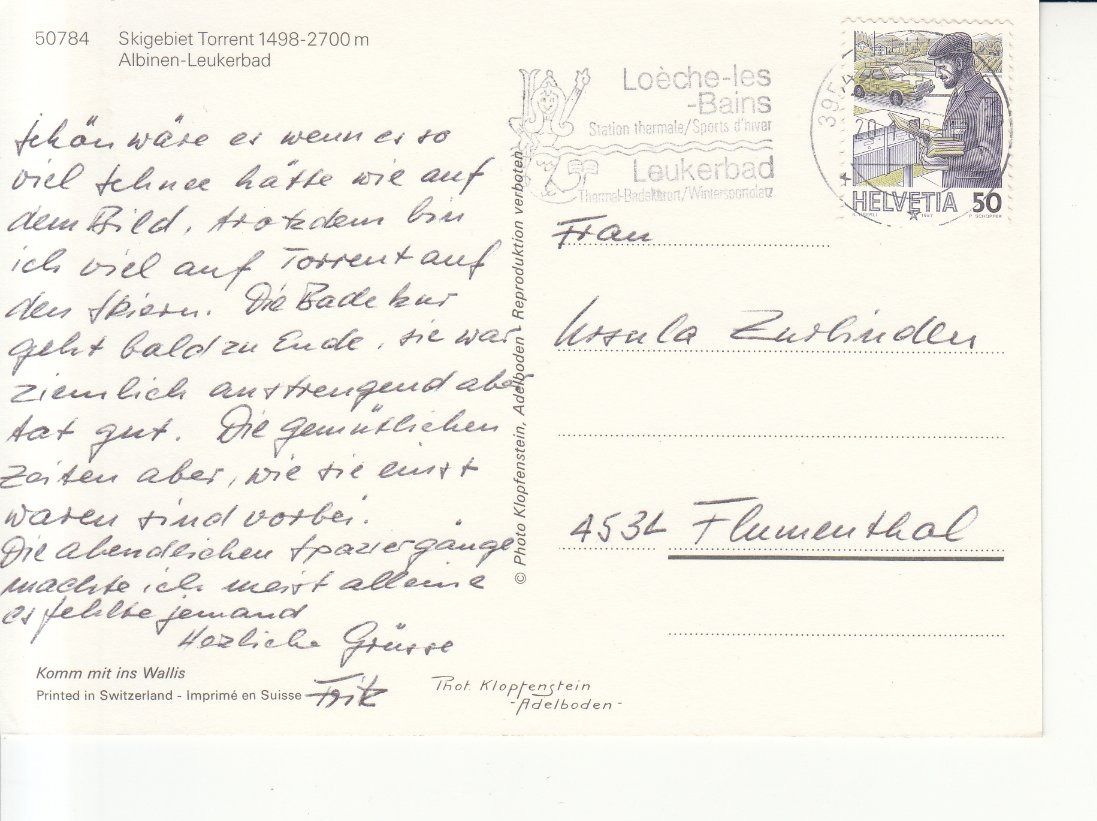 50784 Skigebiet Torrent 1498-2700 m
Albinen-Leukerbad
Schön wäre es wenn es so
viel Schnee hätte wie auf
dem Bild, trotzdem bin
ich viel auf Torrent auf
den Skiern. Die Badekur
geht bald zu Ende, sie war
ziemlich anstrengend aber
tat gut. Die gemütlichen
Zeiten aber, wie sie einst
waren sind vorbei.
Die abendlichen Spaziergänge
machte ich meist alleine
es fehlte jemand
Herzliche Grüsse
Fritz
Komm mit ins Wallis
Printed in Switzerland - Imprimé en Suisse
Phot. Klopfenstein
-Adelboden-
© Photo Klopfenstein, Adelboden - Reproduktion verboten
Loèche-les
-Bains
Station thermale/Sports d'hiver
Leukerbad
Thermal-Badekurort/Wintersportplatz
3954
HELVETIA 50
Frau
Ursula Zurlinden
4532 Flumenthal